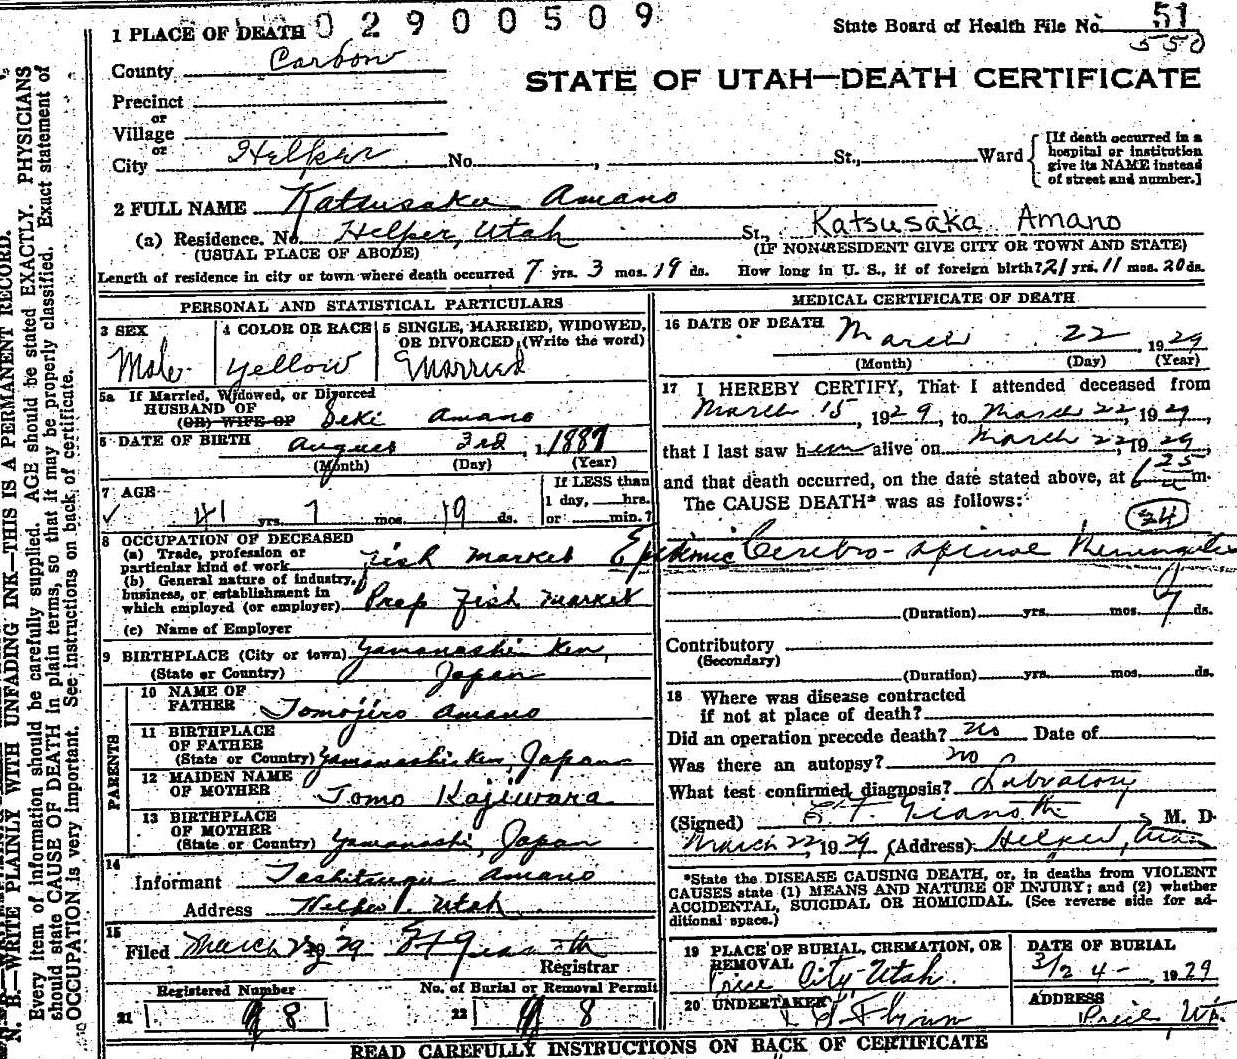 02900509
State Board of Health File No. 51
550
1 PLACE OF DEATH
County Carbon
STATE OF UTAH—DEATH CERTIFICATE
Precinct
or
Village
or
City Helper No. , St., Ward
[If death occurred in a hospital or institution give its NAME instead of street and number.]
2 FULL NAME Katsusaku Amano
Katsusaka Amano
(a) Residence. No. Helper, Utah St.,
(USUAL PLACE OF ABODE) (IF NONRESIDENT GIVE CITY OR TOWN AND STATE)
Length of residence in city or town where death occurred 7 yrs. 3 mos. 19 ds. How long in U. S., if of foreign birth? 21 yrs. 11 mos. 20 ds.
PERSONAL AND STATISTICAL PARTICULARS
3 SEX
Male
4 COLOR OR RACE
Yellow
5 SINGLE, MARRIED, WIDOWED, OR DIVORCED (Write the word)
Married
5a If Married, Widowed, or Divorced
HUSBAND OF
(OR) WIFE OF Seki Amano
6 DATE OF BIRTH August 3rd, 1887
(Month) (Day) (Year)
7 AGE
41 yrs. 7 mos. 19 ds.
If LESS than
1 day, hrs.
or min.?
8 OCCUPATION OF DECEASED
(a) Trade, profession or
particular kind of work Fish Market
(b) General nature of industry,
business, or establishment in
which employed (or employer) Prop Fish Market
(c) Name of Employer
9 BIRTHPLACE (City or town) Yamanashi Ken,
(State or Country) Japan
PARENTS
10 NAME OF
FATHER Tomojiro Amano
11 BIRTHPLACE
OF FATHER
(State or Country) Yamanashi Ken, Japan
12 MAIDEN NAME
OF MOTHER Tomo Kajiwara
13 BIRTHPLACE
OF MOTHER
(State or Country) Yamanashi, Japan
14
Informant Toshitsugu Amano
Address Helper, Utah
15
Filed March 29
Registrar
Registered Number
21 8
No. of Burial or Removal Permit
22 8
MEDICAL CERTIFICATE OF DEATH
16 DATE OF DEATH March 22 1929
(Month) (Day) (Year)
17 I HEREBY CERTIFY, That I attended deceased from
March 15, 1929, to March 22, 1929,
that I last saw him alive on March 22, 1929,
and that death occurred, on the date stated above, at 6 25 m.
The CAUSE DEATH* was as follows:
24
Epidemic Cerebro-spinal Meningitis
(Duration) yrs. mos. 7 ds.
Contributory
(Secondary)
(Duration) yrs. mos. ds.
18 Where was disease contracted
if not at place of death?
Did an operation precede death? no Date of
Was there an autopsy? no
What test confirmed diagnosis? Labratory
(Signed) M. D.
March 22, 1929 (Address) Helper, Utah
*State the DISEASE CAUSING DEATH, or, in deaths from VIOLENT
CAUSES state (1) MEANS AND NATURE OF INJURY; and (2) whether
ACCIDENTAL, SUICIDAL OR HOMICIDAL. (See reverse side for ad-
ditional space.)
19 PLACE OF BURIAL, CREMATION, OR
REMOVAL
Price City, Utah.
DATE OF BURIAL
3/24- 1929
20 UNDERTAKER
Flynn
ADDRESS
Price, Ut.
READ CAREFULLY INSTRUCTIONS ON BACK OF CERTIFICATE
N. B.—WRITE PLAINLY WITH UNFADING INK—THIS IS A PERMANENT RECORD.
Every item of information should be carefully supplied. AGE should be stated EXACTLY. PHYSICIANS
should state CAUSE OF DEATH in plain terms, so that it may be properly classified. Exact statement of
OCCUPATION is very important. See instructions on back of certificate.